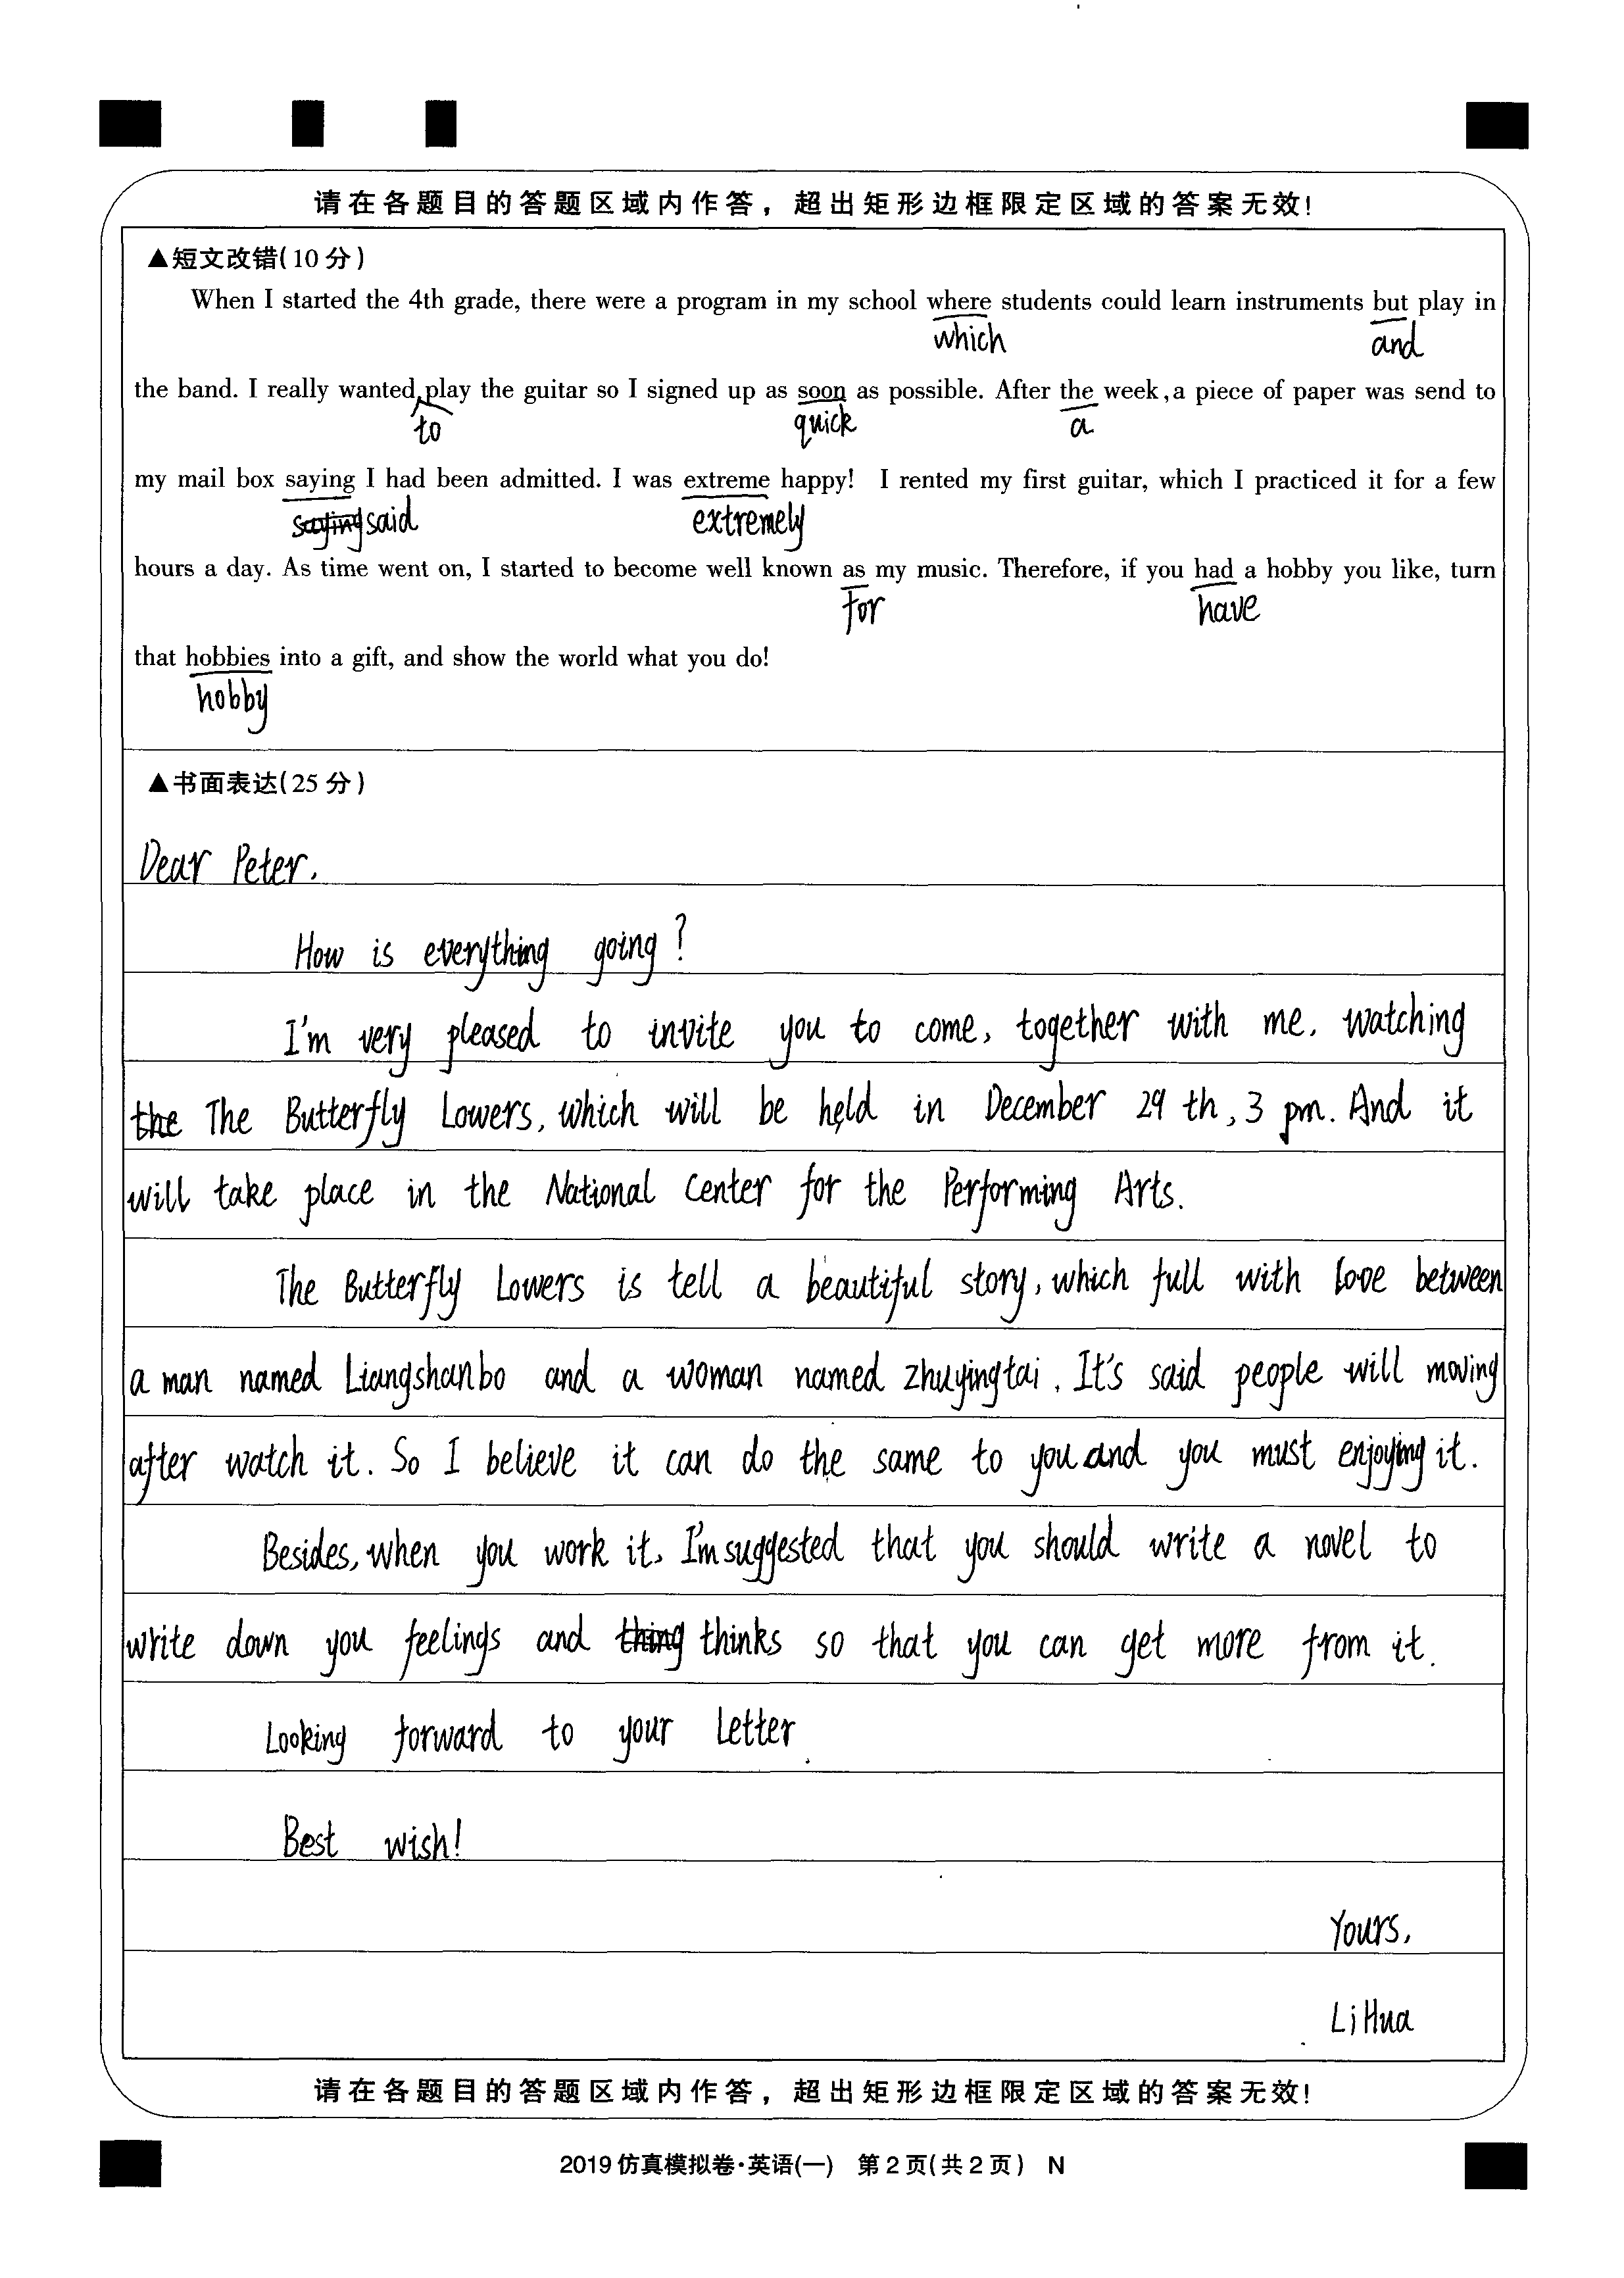 请在各题目的答题区域内作答，超出矩形边框限定区域的答案无效!
▲短文改错(10分)
When I started the 4th grade, there were a program in my school where students could learn instruments but play in
which and
the band. I really wanted play the guitar so I signed up as soon as possible. After the week, a piece of paper was send to
to quick a
my mail box saying I had been admitted. I was extreme happy! I rented my first guitar, which I practiced it for a few
saying said extremely
hours a day. As time went on, I started to become well known as my music. Therefore, if you had a hobby you like, turn
for have
that hobbies into a gift, and show the world what you do!
hobby
▲书面表达(25分)
Dear Peter,
How is everything going?
I'm very pleased to invite you to come, together with me, watching
the The Butterfly Lowers, which will be held in December 29 th, 3 pm. And it
will take place in the National Center for the Performing Arts.
The Butterfly Lowers is tell a beautiful story, which full with love between
a man named Liangshanbo and a woman named zhuyingtai. It's said people will moving
after watch it. So I believe it can do the same to you and you must enjoying it.
Besides, when you work it, I'm suggested that you should write a novel to
write down you feelings and thing thinks so that you can get more from it.
Looking forward to your letter.
Best wish!
Yours,
Li Hua
请在各题目的答题区域内作答，超出矩形边框限定区域的答案无效!
2019仿真模拟卷·英语(一) 第2页(共2页) N